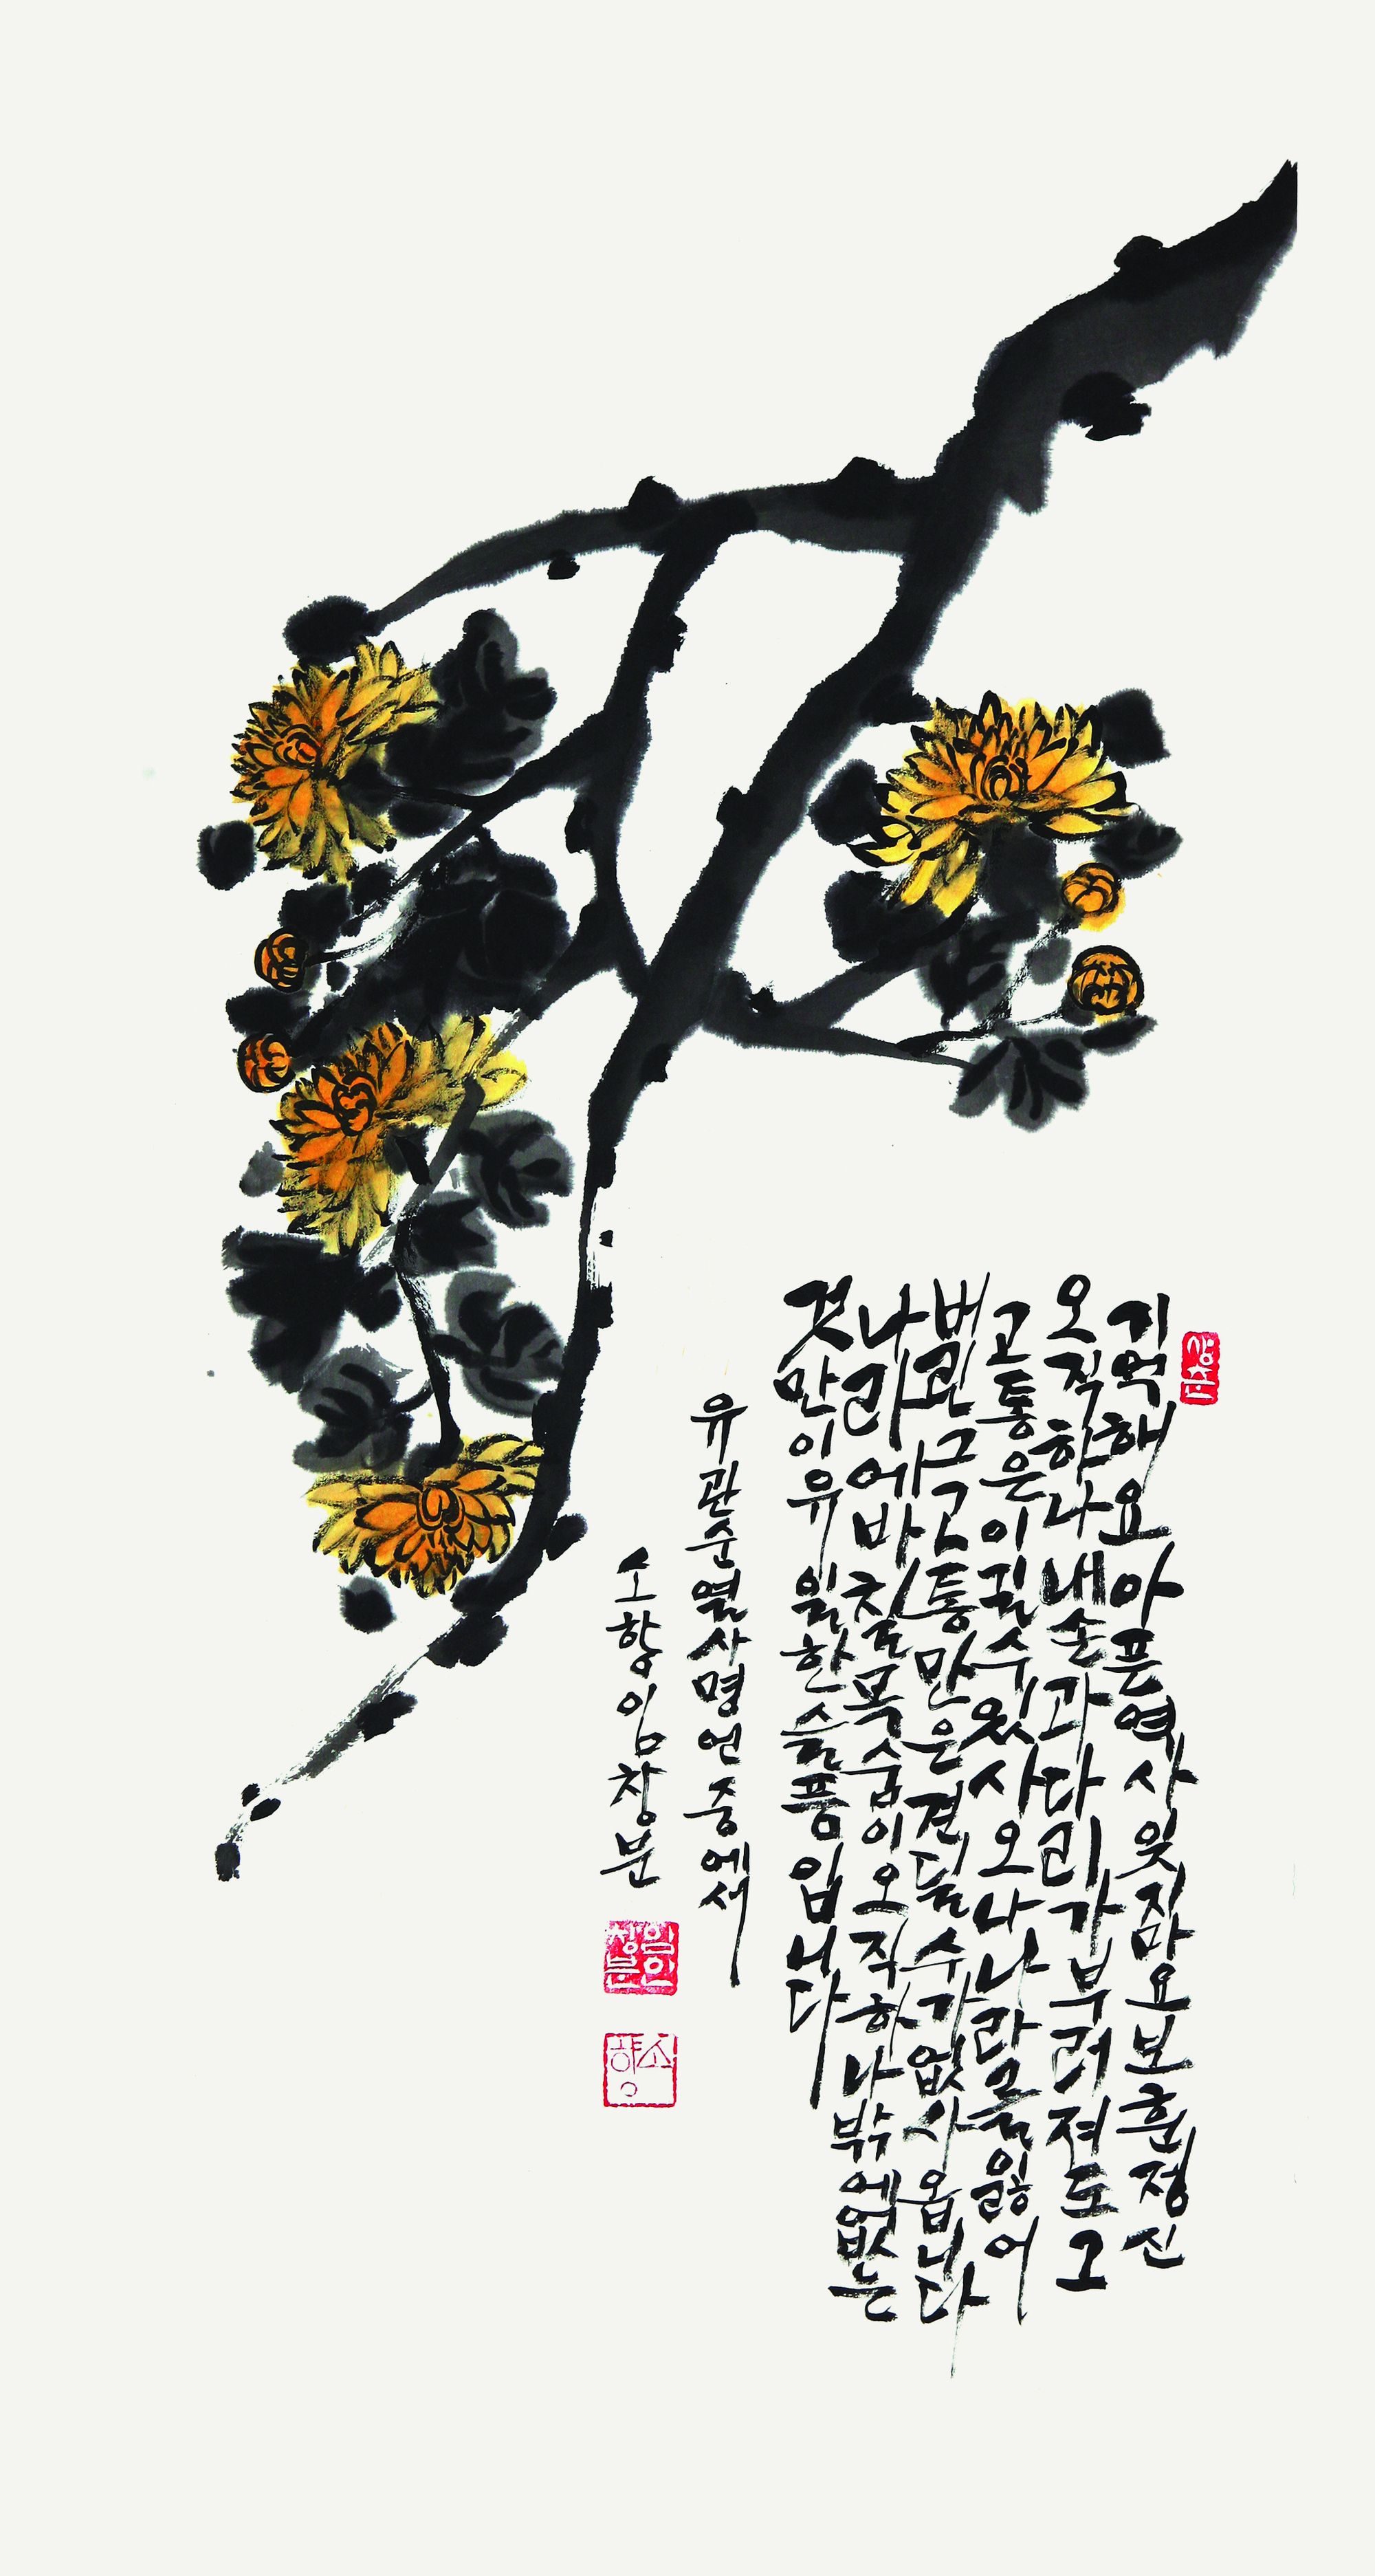 기억해요아픈역사잊지마요보훈정신
오직하나내손과다리가부러져도그
고통은이길수있사오나나라를잃어
버린그고통만은견딜수가없사옵니다
나라에바칠목숨이오직하나밖에없는
것만이유일한슬픔입니다
유관순열사명언중에서
소향임창분
임인
창분
소향